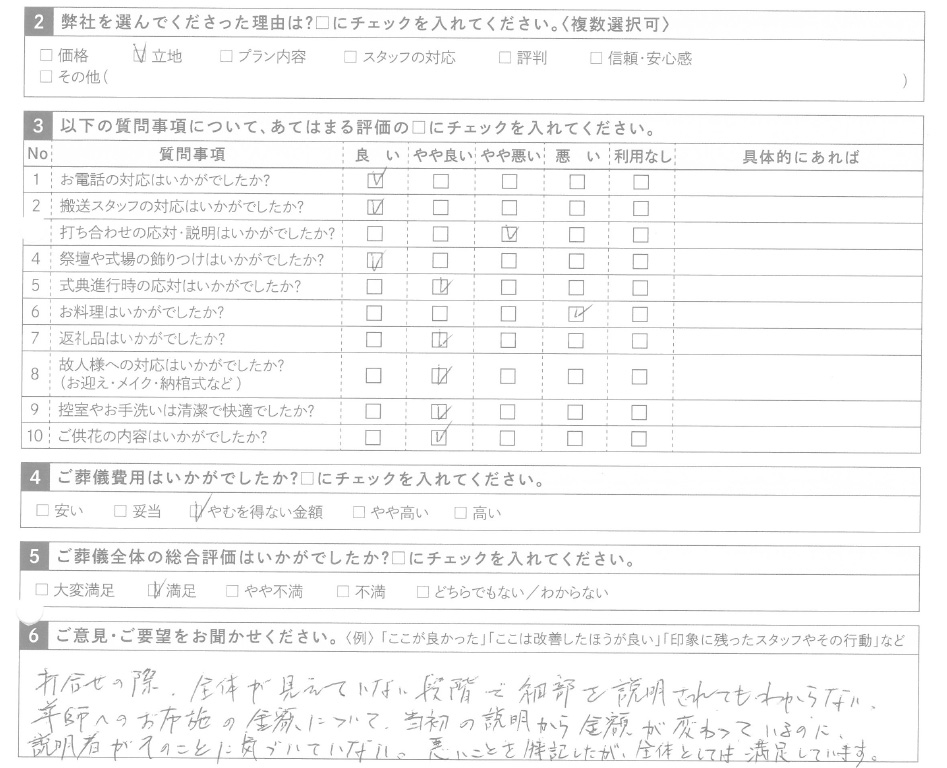 2 弊社を選んでくださった理由は?□にチェックを入れてください。〈複数選択可〉
□ 価格 ☑ 立地 □ プラン内容 □ スタッフの対応 □ 評判 □ 信頼・安心感
□ その他( )
3 以下の質問事項について、あてはまる評価の□にチェックを入れてください。
No 質問事項 良い やや良い やや悪い 悪い 利用なし 具体的にあれば
1 お電話の対応はいかがでしたか? ☑ □ □ □ □
2 搬送スタッフの対応はいかがでしたか? ☑ □ □ □ □
打ち合わせの応対・説明はいかがでしたか? □ □ ☑ □ □
4 祭壇や式場の飾りつけはいかがでしたか? ☑ □ □ □ □
5 式典進行時の応対はいかがでしたか? □ ☑ □ □ □
6 お料理はいかがでしたか? □ □ □ ☑ □
7 返礼品はいかがでしたか? □ ☑ □ □ □
8 故人様への対応はいかがでしたか?
(お迎え・メイク・納棺式など) □ ☑ □ □ □
9 控室やお手洗いは清潔で快適でしたか? □ ☑ □ □ □
10 ご供花の内容はいかがでしたか? □ ☑ □ □ □
4 ご葬儀費用はいかがでしたか?□にチェックを入れてください。
□ 安い □ 妥当 ☑ やむを得ない金額 □ やや高い □ 高い
5 ご葬儀全体の総合評価はいかがでしたか?□にチェックを入れてください。
□ 大変満足 ☑ 満足 □ やや不満 □ 不満 □ どちらでもない/わからない
6 ご意見・ご要望をお聞かせください。〈例〉「ここが良かった」「ここは改善したほうが良い」「印象に残ったスタッフやその行動」など
打合せの際、全体が見えていない段階で細部を説明されてもわからない。
導師へのお布施の金額について、当初の説明から金額が変わっているのに、
説明者がそのことに気づいていない。悪いことを特記したが、全体としては満足しています。